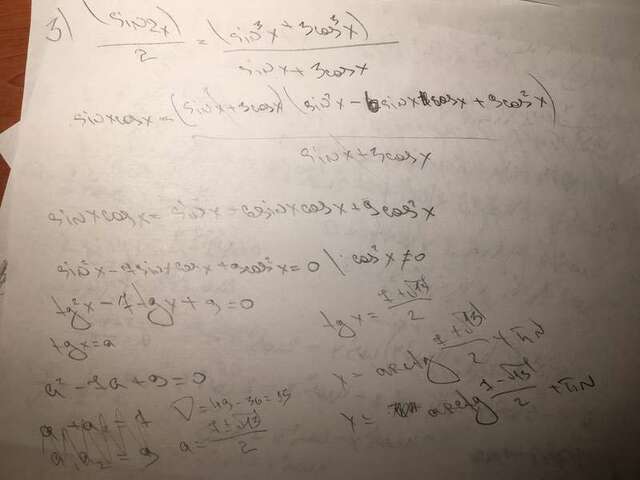 3) (sin2x)/2 = (sin³x + 3cos³x)/(sinx + 3cosx)
sinxcosx = (sinx + 3cosx)(sin²x - 6sinxcosx + 9cos²x)/(sinx + 3cosx)
sinxcosx = sin²x - 6sinxcosx + 9cos²x
sin²x - 7sinxcosx + 9cos²x = 0 | : cos²x ≠ 0
tg²x - 7tgx + 9 = 0
tgx = a
a² - 7a + 9 = 0
a₁ + a₂ = 7
a₁a₂ = 9
D = 49 - 36 = 13
a = (7 ± √13)/2
tgx = (7 ± √13)/2
x = arctg (7 + √13)/2 + πN
x = arctg (7 - √13)/2 + πN